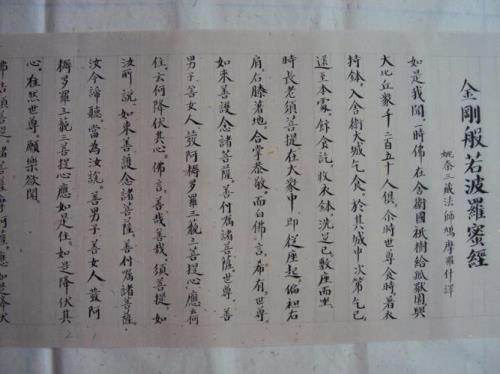 金剛般若波羅蜜經
姚秦三藏法師鳩摩羅什譯
如是我聞。一時佛。在舍衛國祇樹給孤獨園與
大比丘眾千二百五十人俱。尒時世尊食時著衣
持鉢。入舍衛大城乞食。於其城中次第乞已。
還至本處。飯食訖。收衣鉢。洗足已。敷座而坐
時長老須菩提在大眾中。即從座起。偏袒右
肩。右膝著地。合掌恭敬。而白佛言。希有。世尊。
如來善護念諸菩薩。善付囑諸菩薩。世尊。善
男子。善女人。發阿耨多羅三藐三菩提心。應云何
住。云何降伏其心。佛言。善哉善哉。須菩提。如
汝所說。如來善護念諸菩薩。善付囑諸菩薩。
汝今諦聽。當為汝說。善男子。善女人。發阿
耨多羅三藐三菩提心。應如是住。如是降伏其
心。唯然。世尊。願樂欲聞。